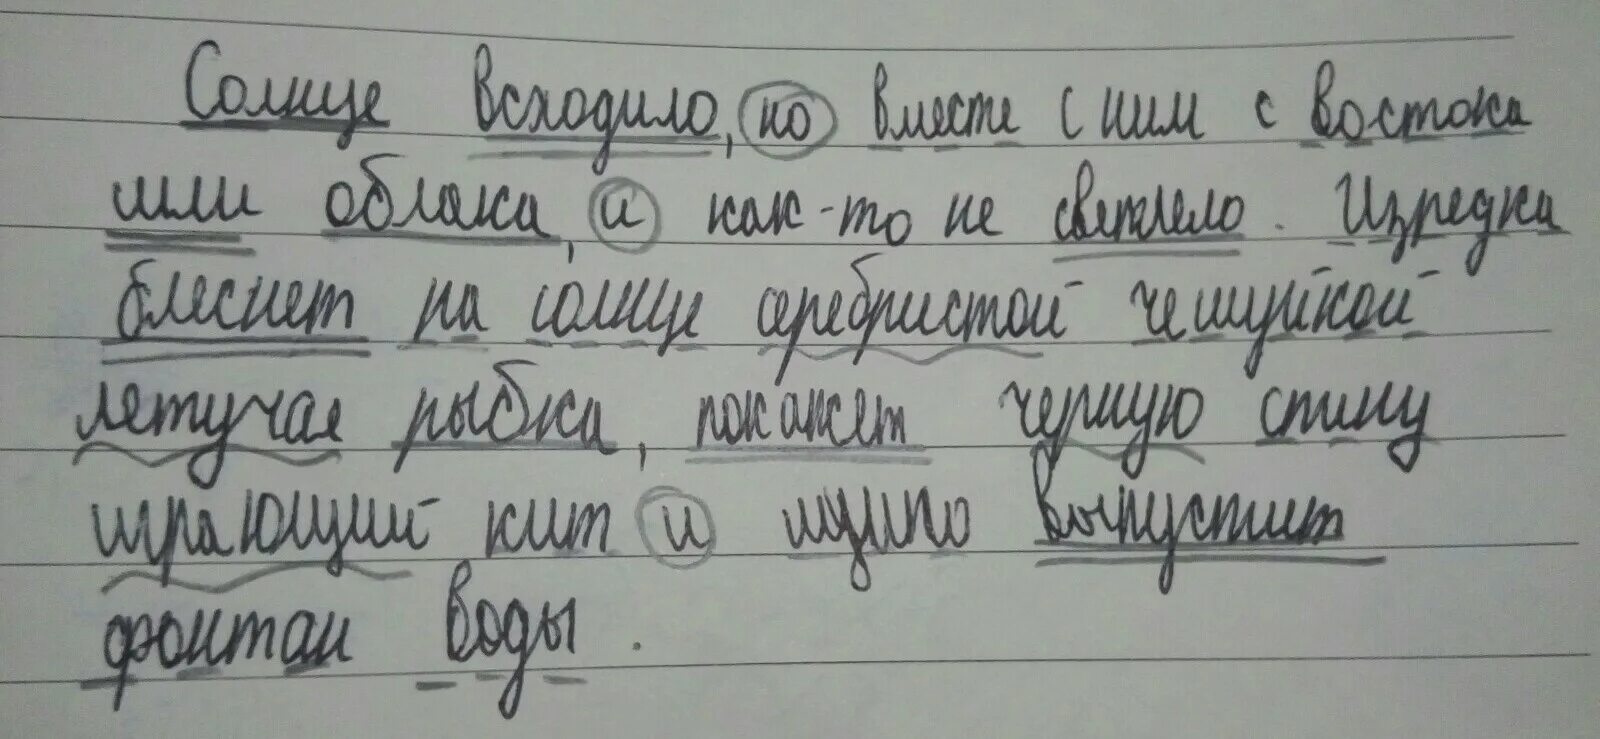 Солнце всходило, но вместе с ним с востока
шли облака, и как-то не светлело. Изредка
блеснет на солнце серебристой чешуйкой
летучая рыбка, покажет черную спину
играющий кит и шумно выпустит
фонтан воды.